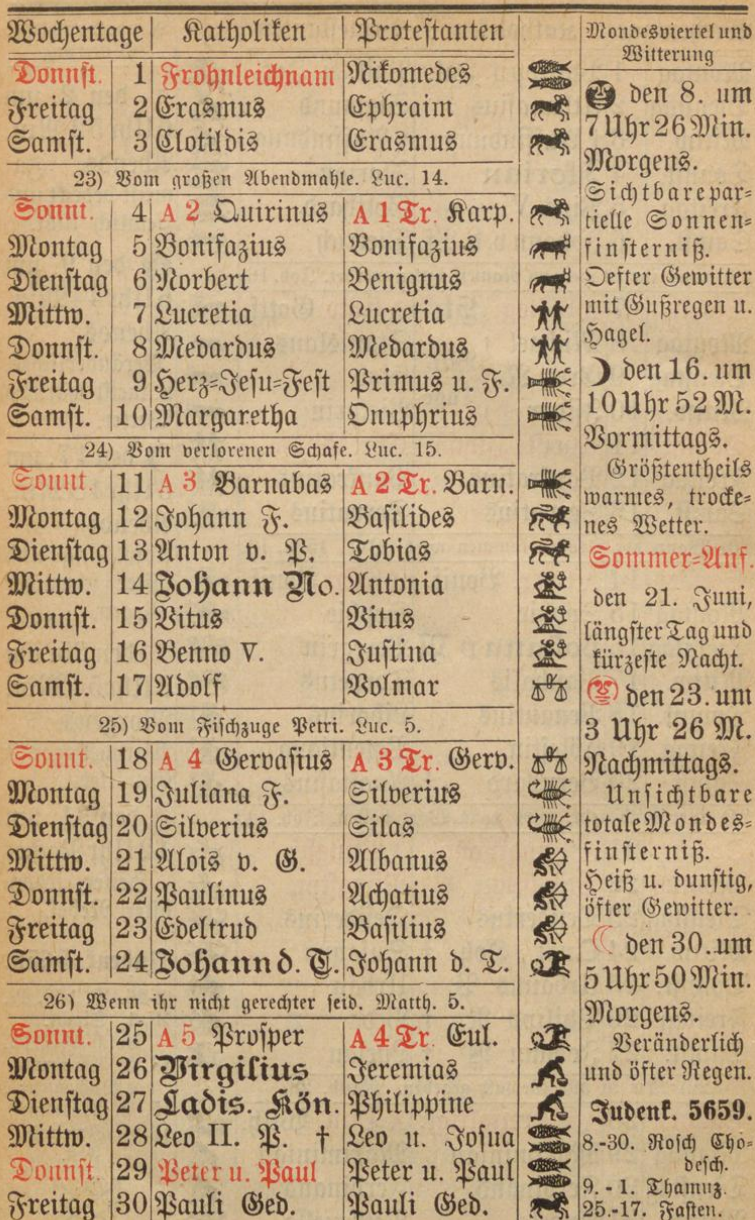 Wochentage Katholiken Protestanten
Donnst. 1 Frohnleichnam Nikomedes
Freitag 2 Erasmus Ephraim
Samst. 3 Clotildis Erasmus
23) Vom großen Abendmahle. Luc. 14.
Sonnt. 4 A 2 Quirinus A 1 Tr. Karp.
Montag 5 Bonifazius Bonifazius
Dienstag 6 Norbert Benignus
Mittw. 7 Lucretia Lucretia
Donnst. 8 Medardus Medardus
Freitag 9 Herz-Jesu-Fest Primus u. F.
Samst. 10 Margaretha Onuphrius
24) Vom verlorenen Schafe. Luc. 15.
Sonnt. 11 A 3 Barnabas A 2 Tr. Barn.
Montag 12 Johann F. Basilides
Dienstag 13 Anton v. P. Tobias
Mittw. 14 Johann No. Antonia
Donnst. 15 Vitus Vitus
Freitag 16 Benno V. Justina
Samst. 17 Adolf Volmar
25) Vom Fischzuge Petri. Luc. 5.
Sonnt. 18 A 4 Gervasius A 3 Tr. Gerv.
Montag 19 Juliana F. Silverius
Dienstag 20 Silverius Silas
Mittw. 21 Alois v. G. Albanus
Donnst. 22 Paulinus Achatius
Freitag 23 Edeltrud Basilius
Samst. 24 Johann d. T. Johann d. T.
26) Wenn ihr nicht gerechter seid. Matth. 5.
Sonnt. 25 A 5 Prosper A 4 Tr. Eul.
Montag 26 Virgilius Jeremias
Dienstag 27 Ladis. Kön. Philippine
Mittw. 28 Leo II. P. † Leo u. Josua
Donnst. 29 Peter u. Paul Peter u. Paul
Freitag 30 Pauli Ged. Pauli Ged.
Mondesviertel und
Witterung
den 8. um
7 Uhr 26 Min.
Morgens.
Sichtbare par-
tielle Sonnen-
finsterniß.
Oefter Gewitter
mit Gußregen u.
Hagel.
den 16. um
10 Uhr 52 M.
Vormittags.
Größtentheils
warmes, trocke-
nes Wetter.
Sommer-Anf.
den 21. Juni,
längster Tag und
kürzeste Nacht.
den 23. um
3 Uhr 26 M.
Nachmittags.
Unsichtbare
totale Mondes-
finsterniß.
Heiß u. dunstig,
öfter Gewitter.
den 30. um
5 Uhr 50 Min.
Morgens.
Veränderlich
und öfter Regen.
Judenk. 5659.
8.-30. Rosch Cho-
desch.
9. - 1. Thamuz.
25.-17. Fasten.